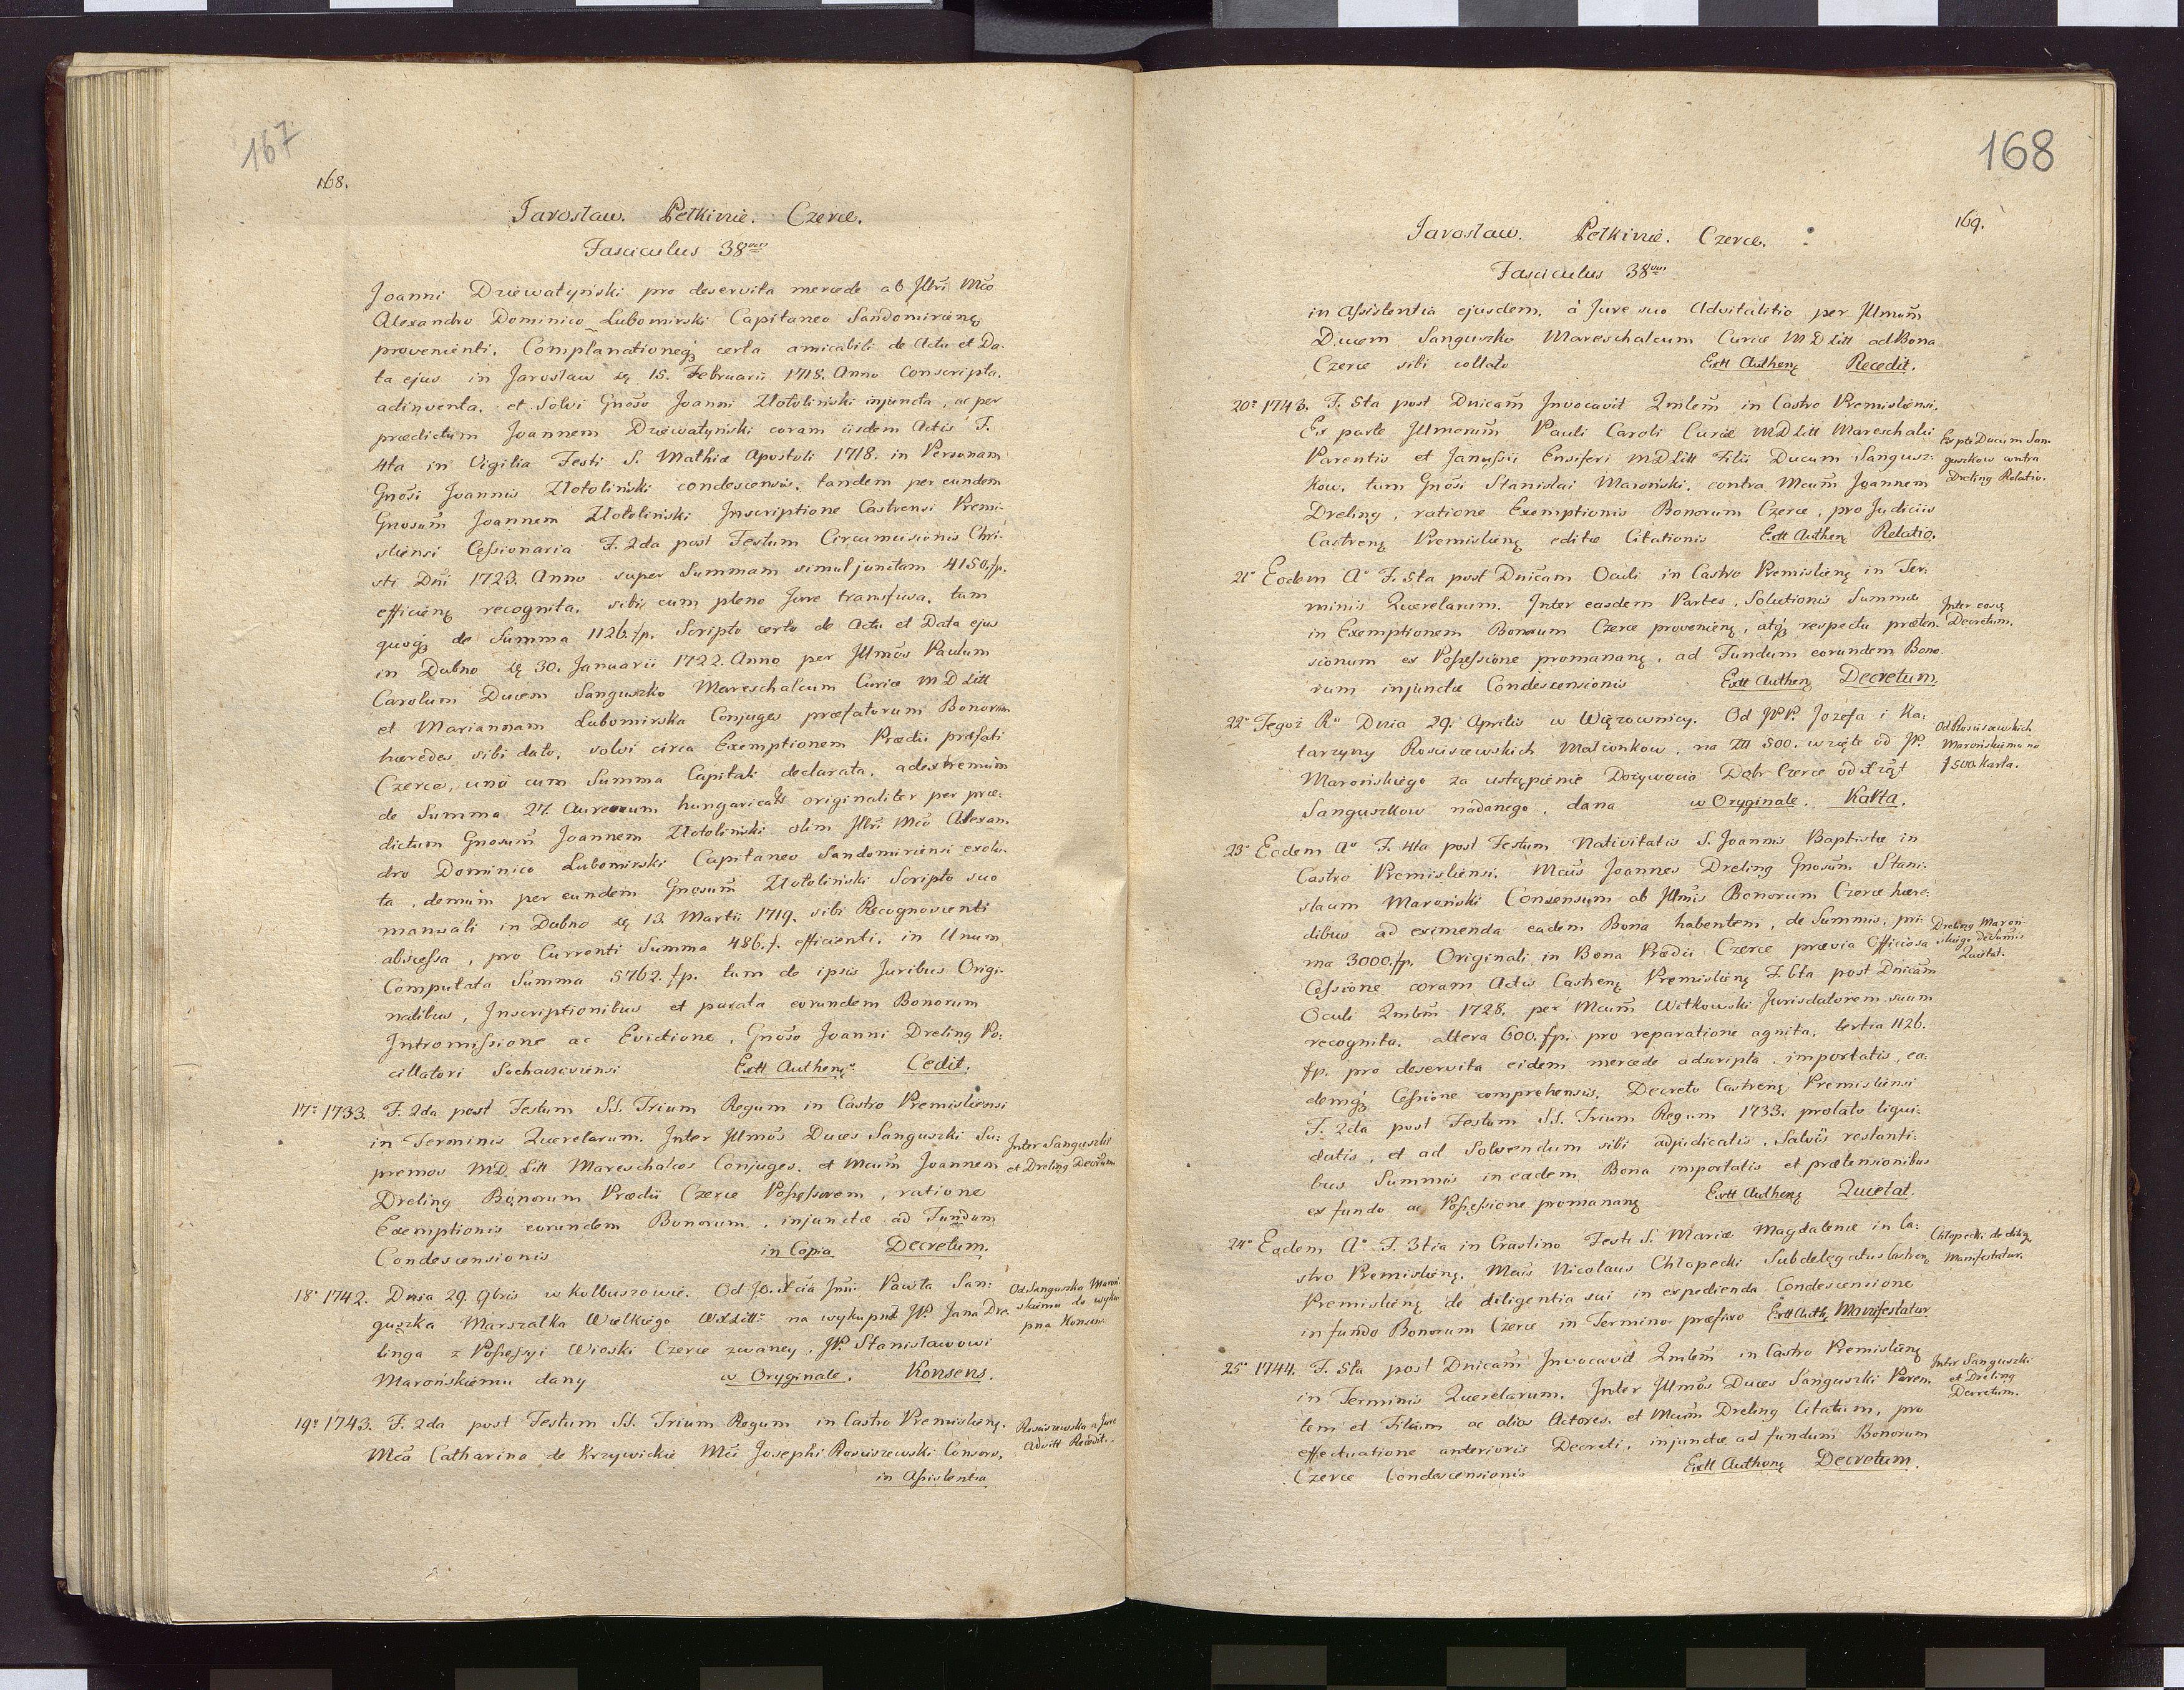 167
168.
Jarosław. Pełkinie. Czerce.
Fasciculus 38vus
Joanni Dziewałyński pro deservita mercede ab Jllri Mco
Alexandro Dominico Lubomirski Capitaneo Sandomirieng
provenienti, Complanationeq3 certa amicabili de Actu et Da-
ta ejus in Jarosław dę 15. Februarii 1718. Anno Conscripta,
adinventa, et Solvi Gnõso Joanni Złotoliński injuncta, ac per
prædictum Joannem Dziewałyński coram iisdem Actis F.
4ta in Vigilia Festi S. Mathiæ Apostoli 1718. in Personam
Gnõsi Joannis Złotoliński condescensis, tandem per eundem
Gnosum̃ Joannem Złotoliński Jnscriptione Castrensi Premi-
sliensi Cessionaria F. 2da post Festum Circumcisionis Chri-
sti Dni 1723. Anno super Summam simul junctam 4150.fp.
efficieng recognita, sibiq cum pleno Jure transfusa, tum
quoq3 de Summa 1126.fp. Scripto certo de Actu et Data ejus
in Dubno dę 30. Januarii 1722. Anno per Jllmõs Paulum
Carolum Ducem Sanguszko Mareschalcum Curiæ M D Litt
et Mariannam Lubomirska Conjuges præfatorum Bonorum
hæredes sibi dato, solvi circa Exemptionem Prædii præfati
Czerce, unà cum Summa Capitali declarata, ad extremum
de Summa 27. Aureorum hungaricalis originaliter per præ-
dictum Gnosum̃ Joannem Złotoliński olim Jllri Mco Alexan-
dro Dominico Lubomirski Capitaneo Sandomiriensi exolu-
ta, demùm per eundem Gnosum̃ Złotoliński Scripto suo
manuali in Dubno dę 13. Martii 1719. sibi Recognoscenti
abscessa, pro Currenti Summa 486.f. efficienti, in Unum
Computata Summa 5762.fp. tum de ipsis Juribus Origi-
nalibus, Jnscriptionibus et parata eorundem Bonorum
Jntromissione ac Evictione, Gnõso Joanni Dreling Po-
cillatori Sochaczoviensi Extt Autheng Cedit.
17o 1733. F. 2da post Festum SS. Trium Regum in Castro Premisliensi
in Terminis Querelarum. Jnter Jllmõs Duces Sanguszki Su-
premos MD Litt Mareschalcos Conjuges, et Mcum̃ Joannem
Dreling Bonorum Prædii Czerce Possessorem, ratione
Exemptionis eorundem Bonorum, injunctæ ad Fundum
Condescensionis in Copia Decretum.
Jnter Sanguszki
et Dreling Decretum
18o 1742. Dnia 29. 9bris w Kolbuszowie. Od Jo. Xcia Jmi Pawła San-
guszka Marszałka Wielkiego WXLitt na wykupno JP. Jana Dre-
linga z Possessyi Wioski Czerce zwaney, JP. Stanisławowi
Marońskiemu dany w Oryginale. Konsens.
Od Sanguszka Maroń-
skiemu do wyku-
pna Konsens
19o 1743. F. 2da post Festum SS. Trium Regum in Castro Premislieng.
Mca Catharina de Krzywickie Mci Josephi Rosciszewski Consors,
in Assistentia
Rosciszewska a Jure
Advitt Recedit.
168
169.
Jarosław. Pełkinie. Czerce.
Fasciculus 38vus
in Assistentia ejusdem, à Jure suo Advitalitio per Jllmum̃
Ducem Sanguszko Mareschalcum Curiæ M D Litt ad Bona
Czerce sibi collato Extt Autheng Recedit.
20o 1743. F. 5ta post Dnicam̃ Jnvocavit Qmlem̃ in Castro Premisliensi.
Ex parte Jllmorum̃ Pauli Caroli Curiæ MD Litt Mareschalci
Parentis et Janussii Ensiferi MD Litt Filii Ducum Sangusz-
kow, tum Gnõsi Stanislai Maroński, contra Mcum̃ Joannem
Dreling, ratione Exemptionis Bonorum Czerce, pro Judiciis
Castreng Premislieng editæ Citationis Extt Autheng Relatio.
Ex pte Ducum San-
guszkow contra
Dreling Relatio.
21o Eodem Ao F. 5ta post Dnicam Oculi in Castro Premislieng in Ter-
minis Querelarum. Jnter easdem Partes, Solutionis Summæ
in Exemptionem Bonorum Czerce provenieng, atq3 respectu præten-
sionum ex Possessione promanang, ad Fundum eorundem Bono-
rum injunctæ Condescensionis Extt Autheng Decretum.
Jnter eosq
Decretum.
22o Tegoż Ru Dnia 29. Aprilis w Więzownicy. Od JPP. Jozefa i Ka-
tarzyny Rosciszewskich Małżonkow, na Złł 500. wzięte od JP.
Marońskiego za ustąpienie Dożywocia Dobr Czerce od Xżąt
Sanguszkow nadanego, dana w Oryginale. Karta.
Od Rosciszewskich
Marońskiemu na
f 500. Karta.
23o Eodem Ao F. 4ta post Festum Nativitatis S. Joannis Baptistæ in
Castro Premisliensi. Mcus Joannes Dreling Gnosum̃ Stani-
slaum Maroński Consensum ab Jllmis Bonorum Czerce hære-
dibus ad eximenda eadem Bona habentem, de Summis, pri-
ma 3000.fp. Originali in Bona Prædii Czerce prævia Officiosa
Cessione coram Actis Castreng Premislieng F. 6ta post Dnicam̃
Oculi Qmlem̃ 1728. per Mcum̃ Witkowski Jurisdatorem suum
recognita, altera 600.fp. pro reparatione agnita, tertia 1126.
fp. pro deservita eidem mercede adscripta, importatis, ea-
demq3 Cessione comprehensis, Decreto Castreng Premisliensi
F. 2da post Festum SS. Trium Regum 1733. prolato liqui-
datis, et ad Solvendum sibi adjudicatis, Salvis restanti-
bus Summis in eadem Bona importatis et prætensionibus
ex fundo ac Possessione promanang Extt Autheng Quietat.
Dreling Maroń-
skiego de Summis
Quietat.
24o Eodem Ao F. 3tia in Crastino Festi S. Mariæ Magdalenæ in Ca-
stro Premislieng. Mcus Nicolaus Chłopecki Subdelegatus Castreng
Premislieng de diligentia sui in expedienda Condescensione
in fundo Bonorum Czerce in Termino præfixo Extt Auth. Manifestatur
Chłopecki de dilig
Manifestatur.
25o 1744. F. 5ta post Dnicam̃ Jnvocavit Qmlem̃ in Castro Premislieng
in Terminis Querelarum. Jnter Jllmõs Duces Sanguszki Paren-
tem et Filium ac alios Actores, et Mcum̃ Dreling Citatum, pro
effectuatione anterioris Decreti, injunctæ ad fundum Bonorum
Czerce Condescensionis Extt Autheng Decretum.
Jnter Sanguszki
et Dreling
Decretum.